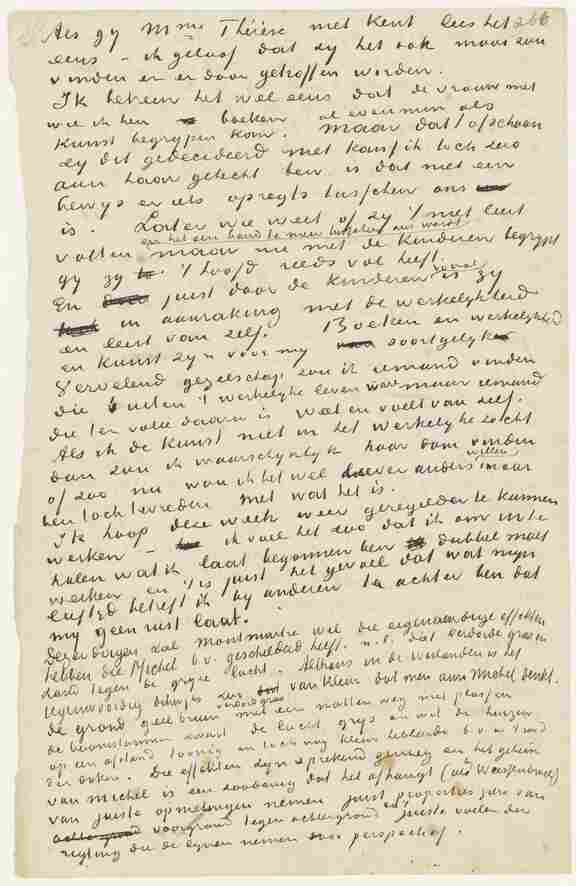 Als gy Mme Thérèse niet kent lees het 266
eens - ik geloof dat gy het ook mooi zou
vinden en er door getroffen worden.
Ik betreur het wel eens dat de vrouw met
wie ik ben boeken al evenmin als
kunst begrypen kan. Maar dat (ofschoon
zy dit gedecideerd niet kan) ik toch zoo
aan haar gehecht ben is dat niet een
bewys er iets opregts tusschen ons
is. Later wie weet of zy 't niet leert
en het een band te meer tusschen ons wordt
vatten maar nu met de kinderen begrypt
gy zy 't hoofd reeds vol heeft.
En juist door de kinderen vooral is zy
in aanraking met de werkelykheid
en leert van zelf. Boeken en werkelykheid
en kunst zyn voor my soortgelyk
Vervelend gezelschap zou ik iemand vinden
die buiten 't werkelyke leven was maar iemand
die ten volle daarin is weet en voelt van zelf.
Als ik de kunst niet in het werkelyke zocht
dan zou ik waarschynlyk haar dom vinden
of zoo nu wou ik het wel liever anders willen maar
ben toch tevreden met wat het is.
Ik hoop deze week weer geregelder te kunnen
werken - ik voel het zoo dat ik om in te
halen wat ik laat begonnen ben dubbel moet
werken en 't is juist het gevoel dat wat myn
leeftyd betreft ik by anderen ten achter ben dat
my geen rust laat.
Dezer dagen zal Montmartre wel die eigenaardige effekten
hebben die Michel b.v. geschilderd heeft. n.l. dat verdorde gras en
zand tegen de gryze lucht. Althans in de weilanden is het
tegenwoordig dikwyls zoo van kleur dat men aan Michel denkt.
de grond geel bruin verdord gras met een natten weg met plassen
de boomstammen zwart de lucht grys en wit de huizen
op een afstand toonig en toch nog kleur hebbende b.v. 't rood
der daken. Die effekten zyn sprekend genoeg en het geheim
van Michel is een zaak dat het afhangt (als Weissenbruch)
van juiste opmetingen nemen juist proporties zien van
voorgrond tegen achtergrond en juiste voelen der
rigting die de lynen nemen door perspectief.